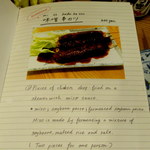 味噌串カツ
Pieces of chicken deep fried on a
skewer with miso sauce.
miso; soybean paste (fermented soybean paste)
Miso is made by fermenting a mixture of
soybeans malted rice and salt.
( Two pieces for one person )